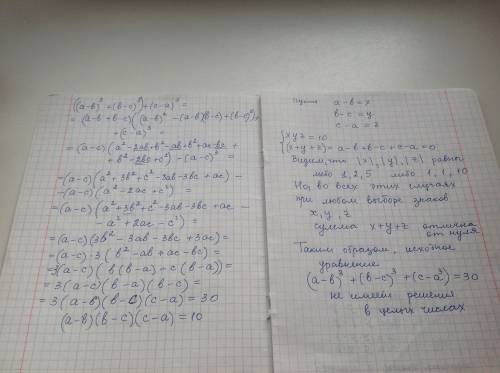 (a-b)³+(b-c)³+(c-a)³=
=(a-b+b-c)((a-b)²-(a-b)(b-c)+(b-c)²)+
+(c-a)³=
=(a-c)(a²-2ab+b²-ab+b²+ac-bc+
+b²-2bc+c²)-(a-c)³=
=(a-c)(a²+3b²+c²-3ab-3bc+ac)-
-(a-c)(a²-2ac+c²)=
=(a-c)(a²+3b²+c²-3ab-3bc+ac-
-a²+2ac-c²)=
=(a-c)(3b²-3ab-3bc+3ac)=
=(a-c)·3(b²-ab+ac-bc)=
=3(a-c)(b(b-a)+c(b-a))=
=3(a-c)(b-a)(b-c)=
=3(a-b)(b-c)(c-a)=30
(a-b)(b-c)(c-a)=10
Пусть a-b=x
b-c=y
c-a=z
{xyz=10
{x+y+z=a-b+b-c+c-a=0
Видим, что |x|,|y|,|z| равны
либо 1,2,5 либо 1,1,10
Но, во всех этих случаях
при любом выборе знаков
x,y,z
сумма x+y+z отлична
от нуля
Таким образом, исходное
уравнение
(a-b)³+(b-c)³+(c-a³)=30
не имеет решения
в целых числах